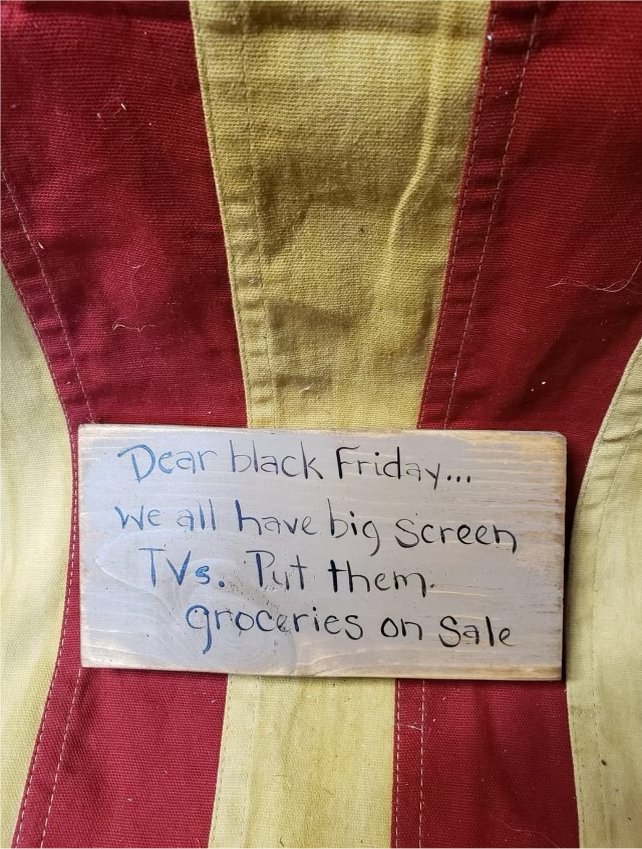 Dear black Friday...
We all have big screen
TVs. Put them.
groceries on Sale